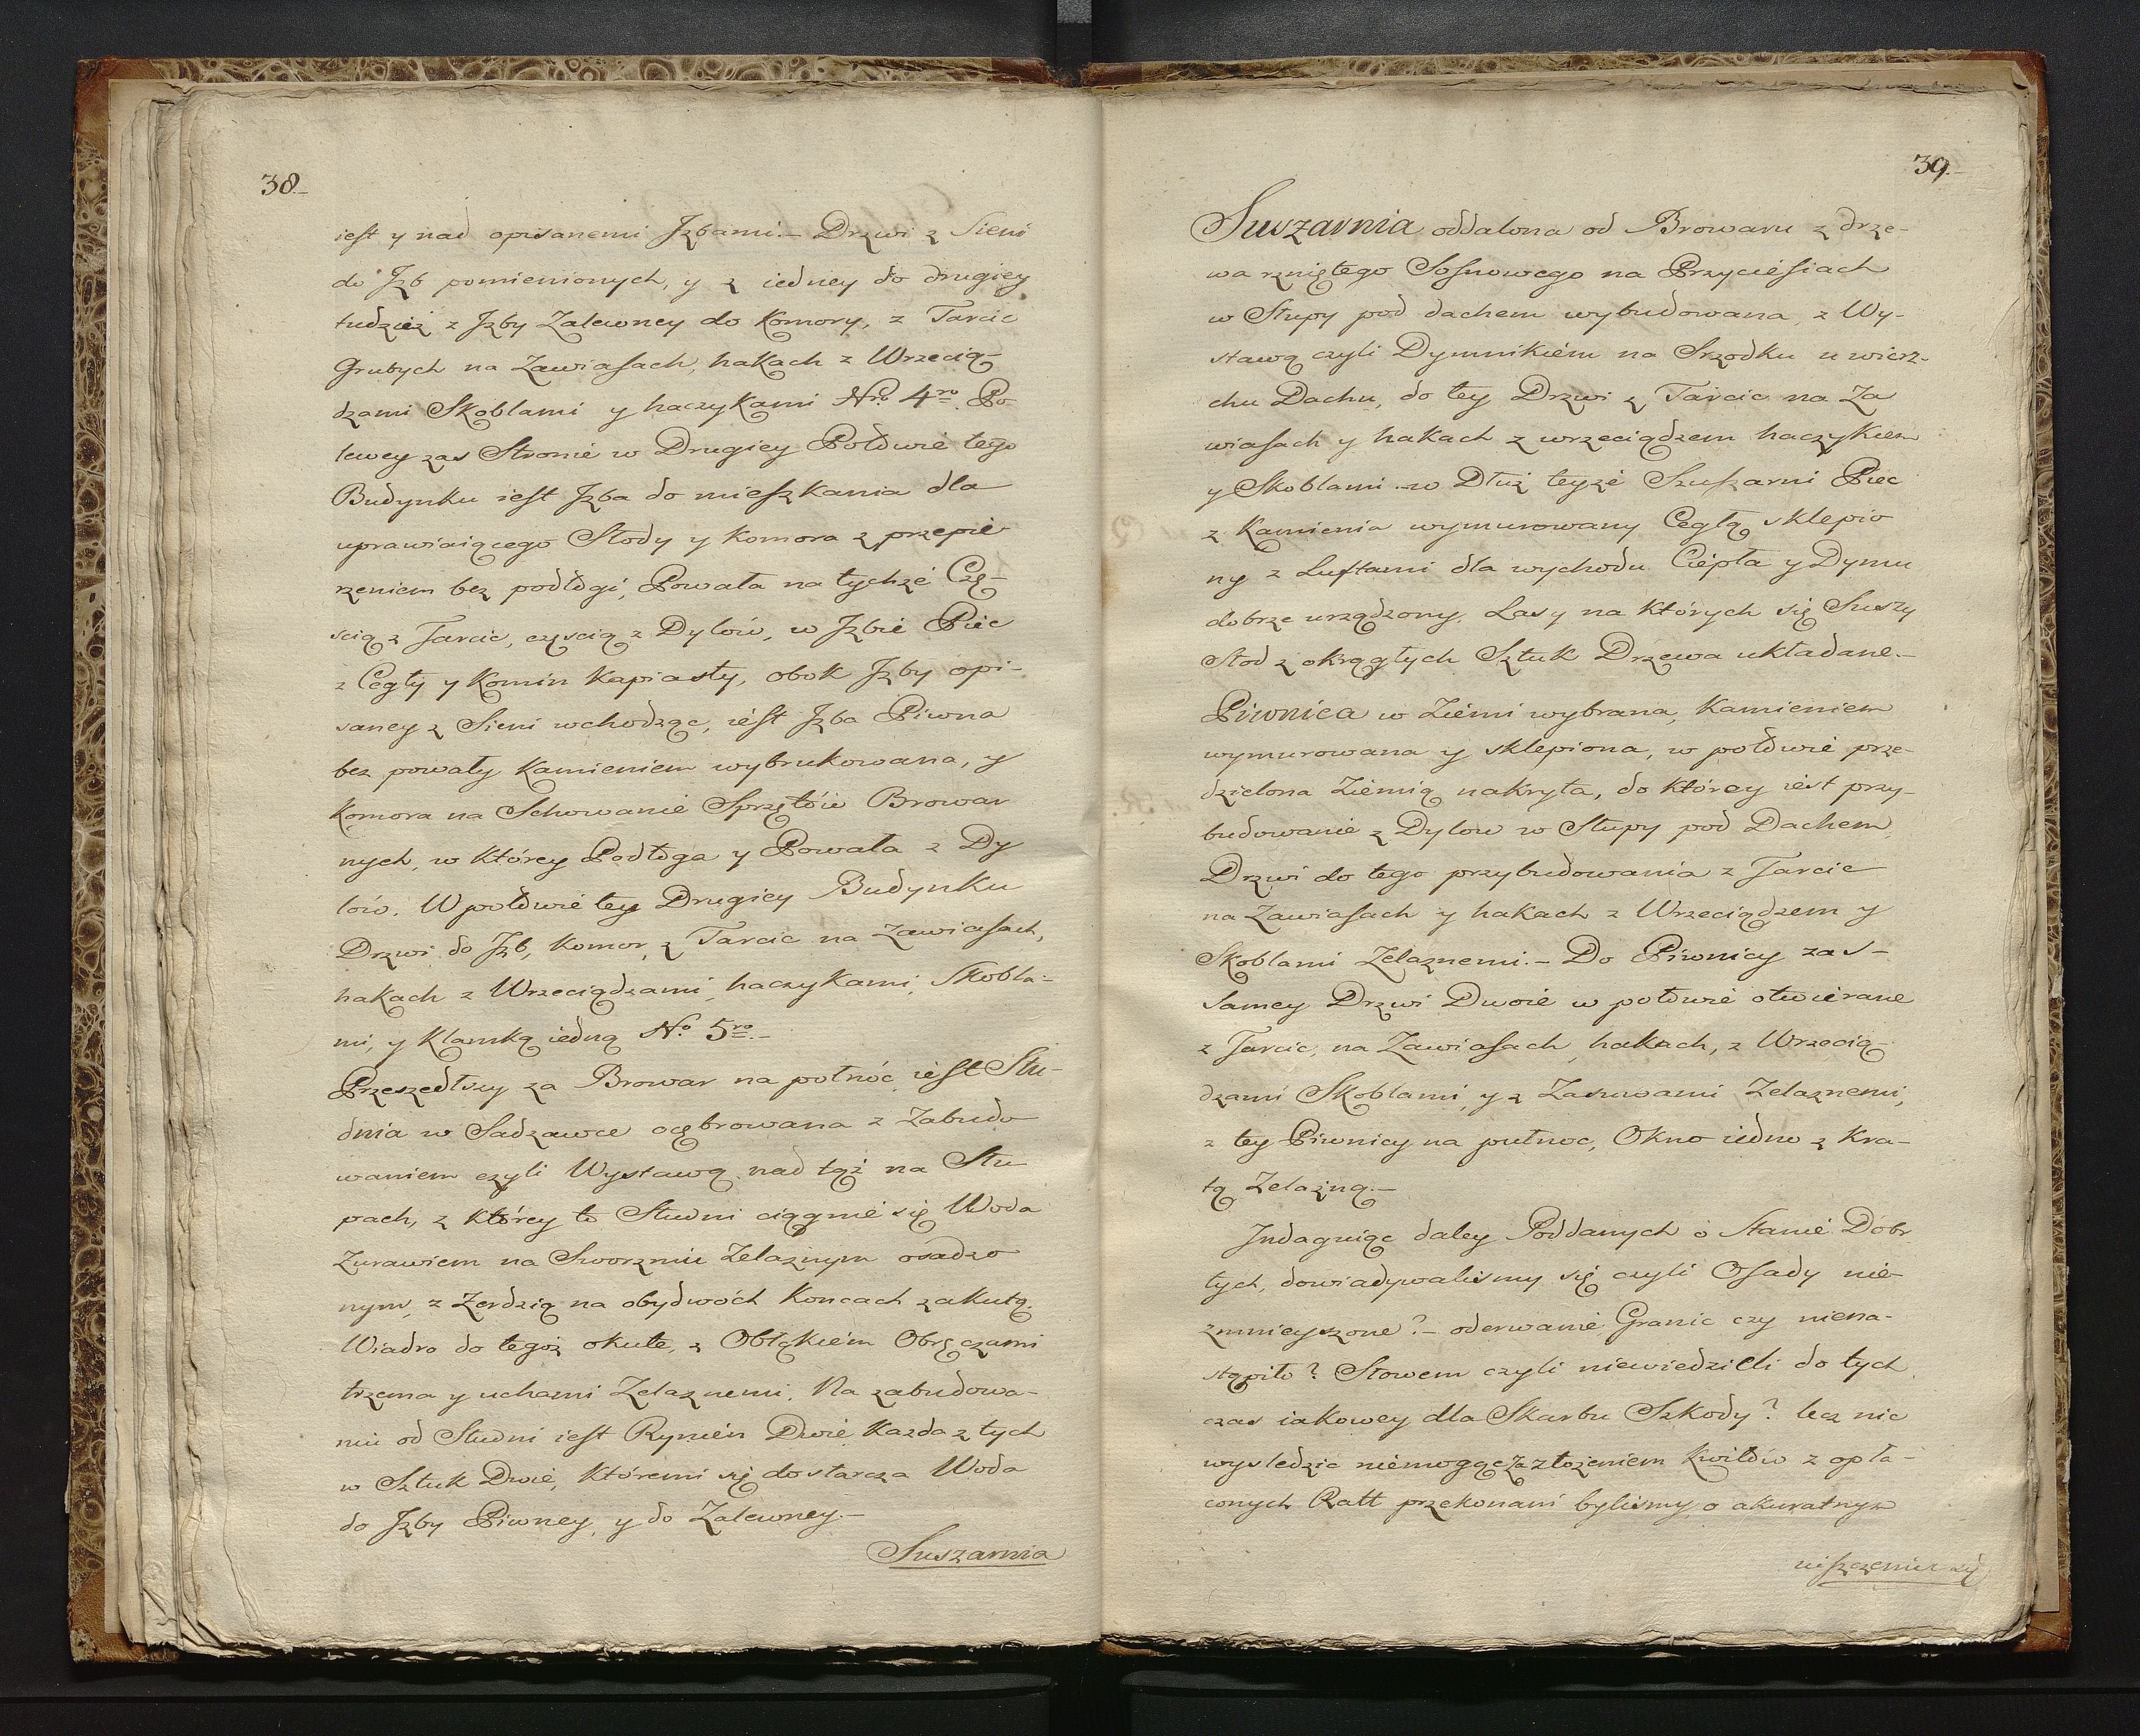 38.
iest y nad opisanemi Jzbami.– Drzwi z Sieni
do Jzb pomienionych, y z iedney do drugiey
tudzież z Jzby Zalewney do Komory, z Tarcic
Grubych na Zawiasach, hakach z Wrzecią-
dzami Skoblami y haczykami Nro. 4ro. Po
lewey zas Stronie w Drugiey Połowie tego
Budynku iest Jzba do mieszkania dla
uprawiaiącego Słody y Komora z przepie-
rzeniem bez podłogi, Powała na tychże Czę-
ścią z Tarcic, częscią z Dylow, w Jzbie Piec
z Cegły y Komin Kapiasty, obok Jzby opi-
saney z Sieni wchodząc, iest Jzba Piwna
bez powały Kamieniem wybrukowana, y
Komora na Schowanie Sprzętów Browar
nych, w którey Podłoga y Powała z Dy
low. W połowie tey Drugiey Budynku
Drzwi do Jzb, Komor, z Tarcic na Zawiasach,
hakach z Wrzeciądzami, haczykami, Skobla-
mi, y Klamką iedną No. 5ro.–
Przeszedłszy za Browar na połnóc, iest Stu-
dnia w Sadzawce ocębrowana z Zabudo
waniem czyli Wystawą nad tąż na Słu
pach, z którey to Studni ciągnie się Woda
Zurawiem na Sworzniu Zelaznym osadzo
nym, z Zerdzią na obydwóch Koncach zakutą.
Wiadro do tegoż okute, z Obłękiem Obręczami
trzema y uchami Zelaznemi. Na zabudowa-
niu od Studni iest Rynien Dwie Kazda z tych
w Sztuk Dwie, któremi się dostarcza Woda
do Jzby Piwney, y do Zalewney.–
Suszarnia
39.
Suszarnia oddalona od Browaru z drze-
wa rzniętego Sosnowego na Przyciesiach
w Słupy pod dachem wybudowana, z Wy-
stawą czyli Dymnikiem na Srzodku u wierz-
chu Dachu, do tey Drzwi z Tarcic na Za
wiasach y hakach z wrzeciądzem haczykiem
y Skoblami – w Dłuż teyże Szuszarni Piec
z Kamienia wymurowany Cegłą sklepio
ny z Luftami dla wychodu Ciepła y Dymu
dobrze urządzony. Lasy na których się Suszy
Słod z okrągłych Sztuk Drzewa układane.–
Piwnica w Ziemi wybrana, Kamieniem
wymurowana y sklepiona, w połowie prze-
dzielona Ziemią nakryta, do którey iest przy-
budowanie z Dylow w Słupy pod Dachem,
Drzwi do tego przybudowania z Tarcic
na Zawiasach y hakach z Wrzeciądzem y
Skoblami Zelaznemi.– Do Piwnicy zas –
Samey Drzwi Dwoie w połowie otwierane
z Tarcic, na Zawiasach, hakach, z Wrzecią-
dzami Skoblami, y z Zasuwami Zelaznemi,
z tey Piwnicy na pułnoc, Okno iedno z Kra-
tą Zelazną.–
Jndaguiąc daley Poddanych o Stanie Dobr
tych, dowiadywalismy się czyli Osady nie-
zmnieyszone?– oderwanie Granic czy niena-
stąpiło? Słowem czyli niewiedzieli do tych
czas iakowey dla Skarbu Szkody? lecz nic
wysledzic niemogąc Za złożeniem Kwitów z opła-
conych Ratt przekonani bylismy, o akuratnym
uiszczeniu się